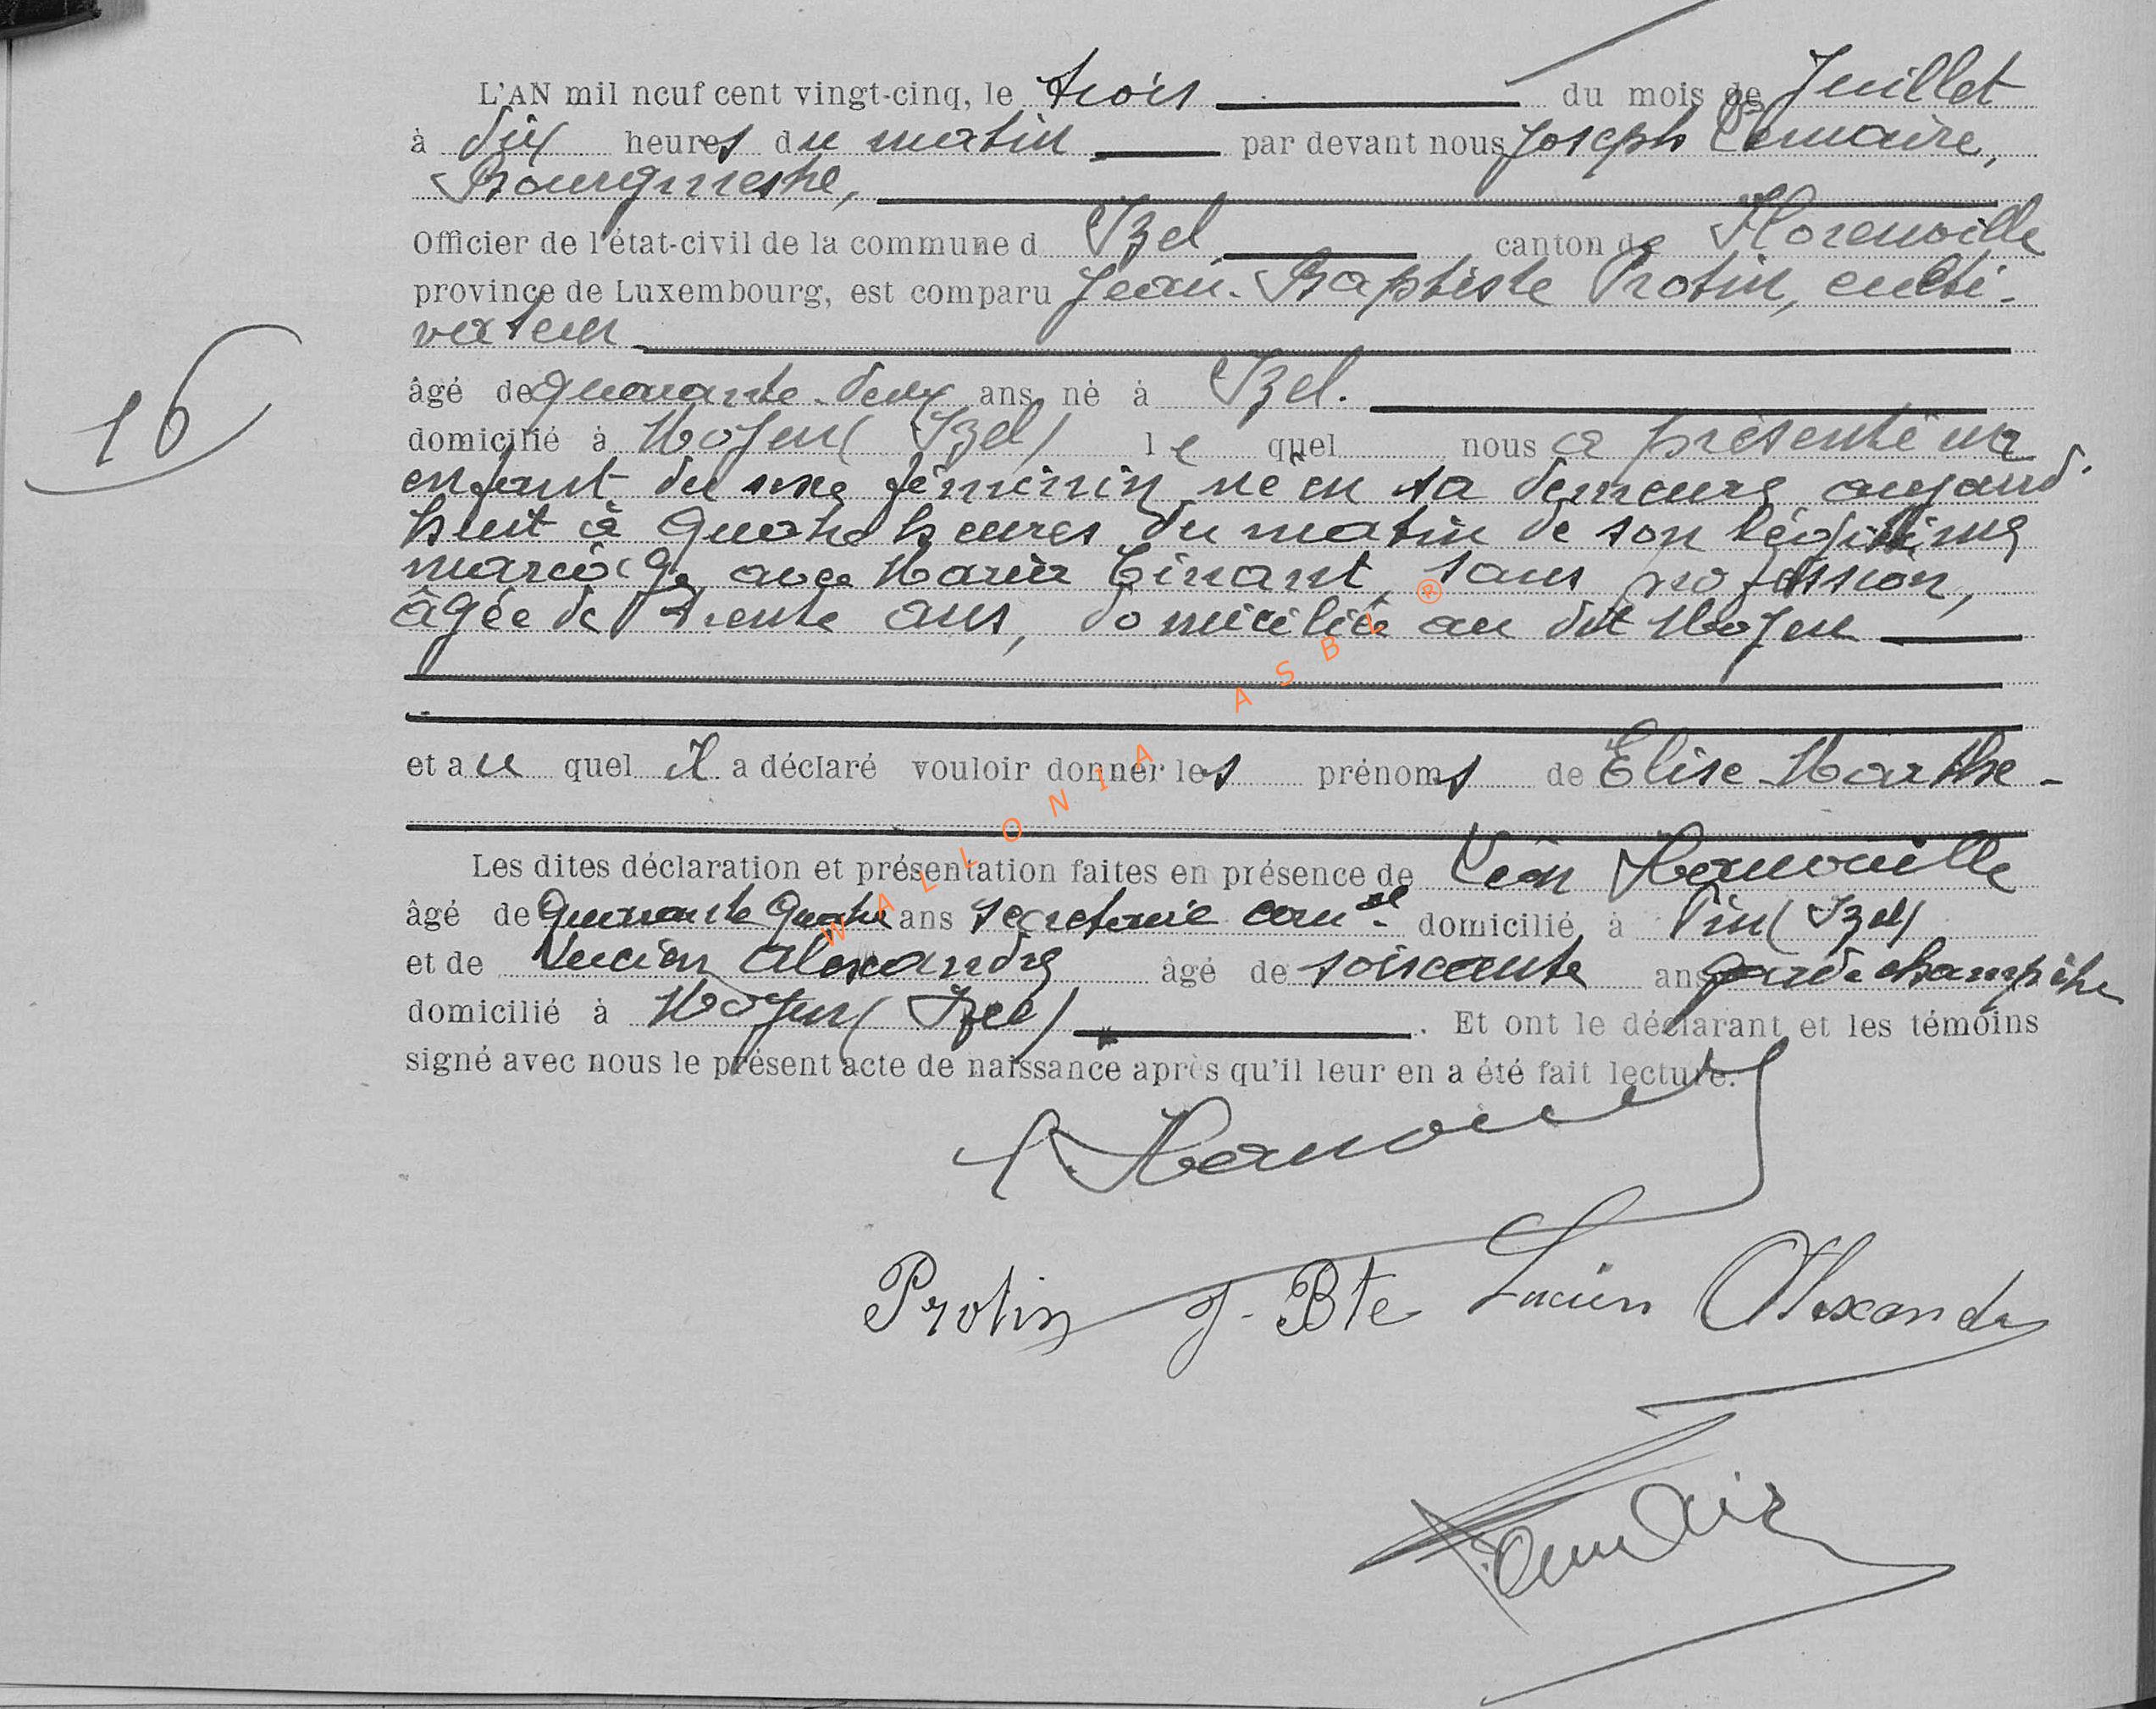 L'AN mil neuf cent vingt-cinq, le trois du mois de Juillet
à dix heures du matin par devant nous Joseph Lemaire,
Bourgmestre,
Officier de l'état-civil de la commune d Izel canton de Florenville
province de Luxembourg, est comparu Jean-Baptiste Protin, culti-
vateur
âgé de quarante-deux ans né à Izel.
domicilié à Moyen (Izel) le quel nous a présenté un
16
enfant du sexe féminin né en sa demeure aujourd'
huit à quatre heures du matin de son légitime
mariage avec Maria Tinant, sans profession,
âgée de trente ans, domiciliée au dit Moyen
et au quel il a déclaré vouloir donner les prénoms de Elise-Marthe-
Les dites déclaration et présentation faites en présence de Léon
âgé de quarante quatre ans secrétaire comal domicilié à Pin (Izel)
et de Lucien Alexandre âgé de soixante ans garde champêtre
domicilié à Moyen (Izel). Et ont le déclarant et les témoins
signé avec nous le présent acte de naissance après qu'il leur en a été fait lecture.
Protin J-Bte Lucien Alexandre
Lemaire
WALLONIA ASBL ®